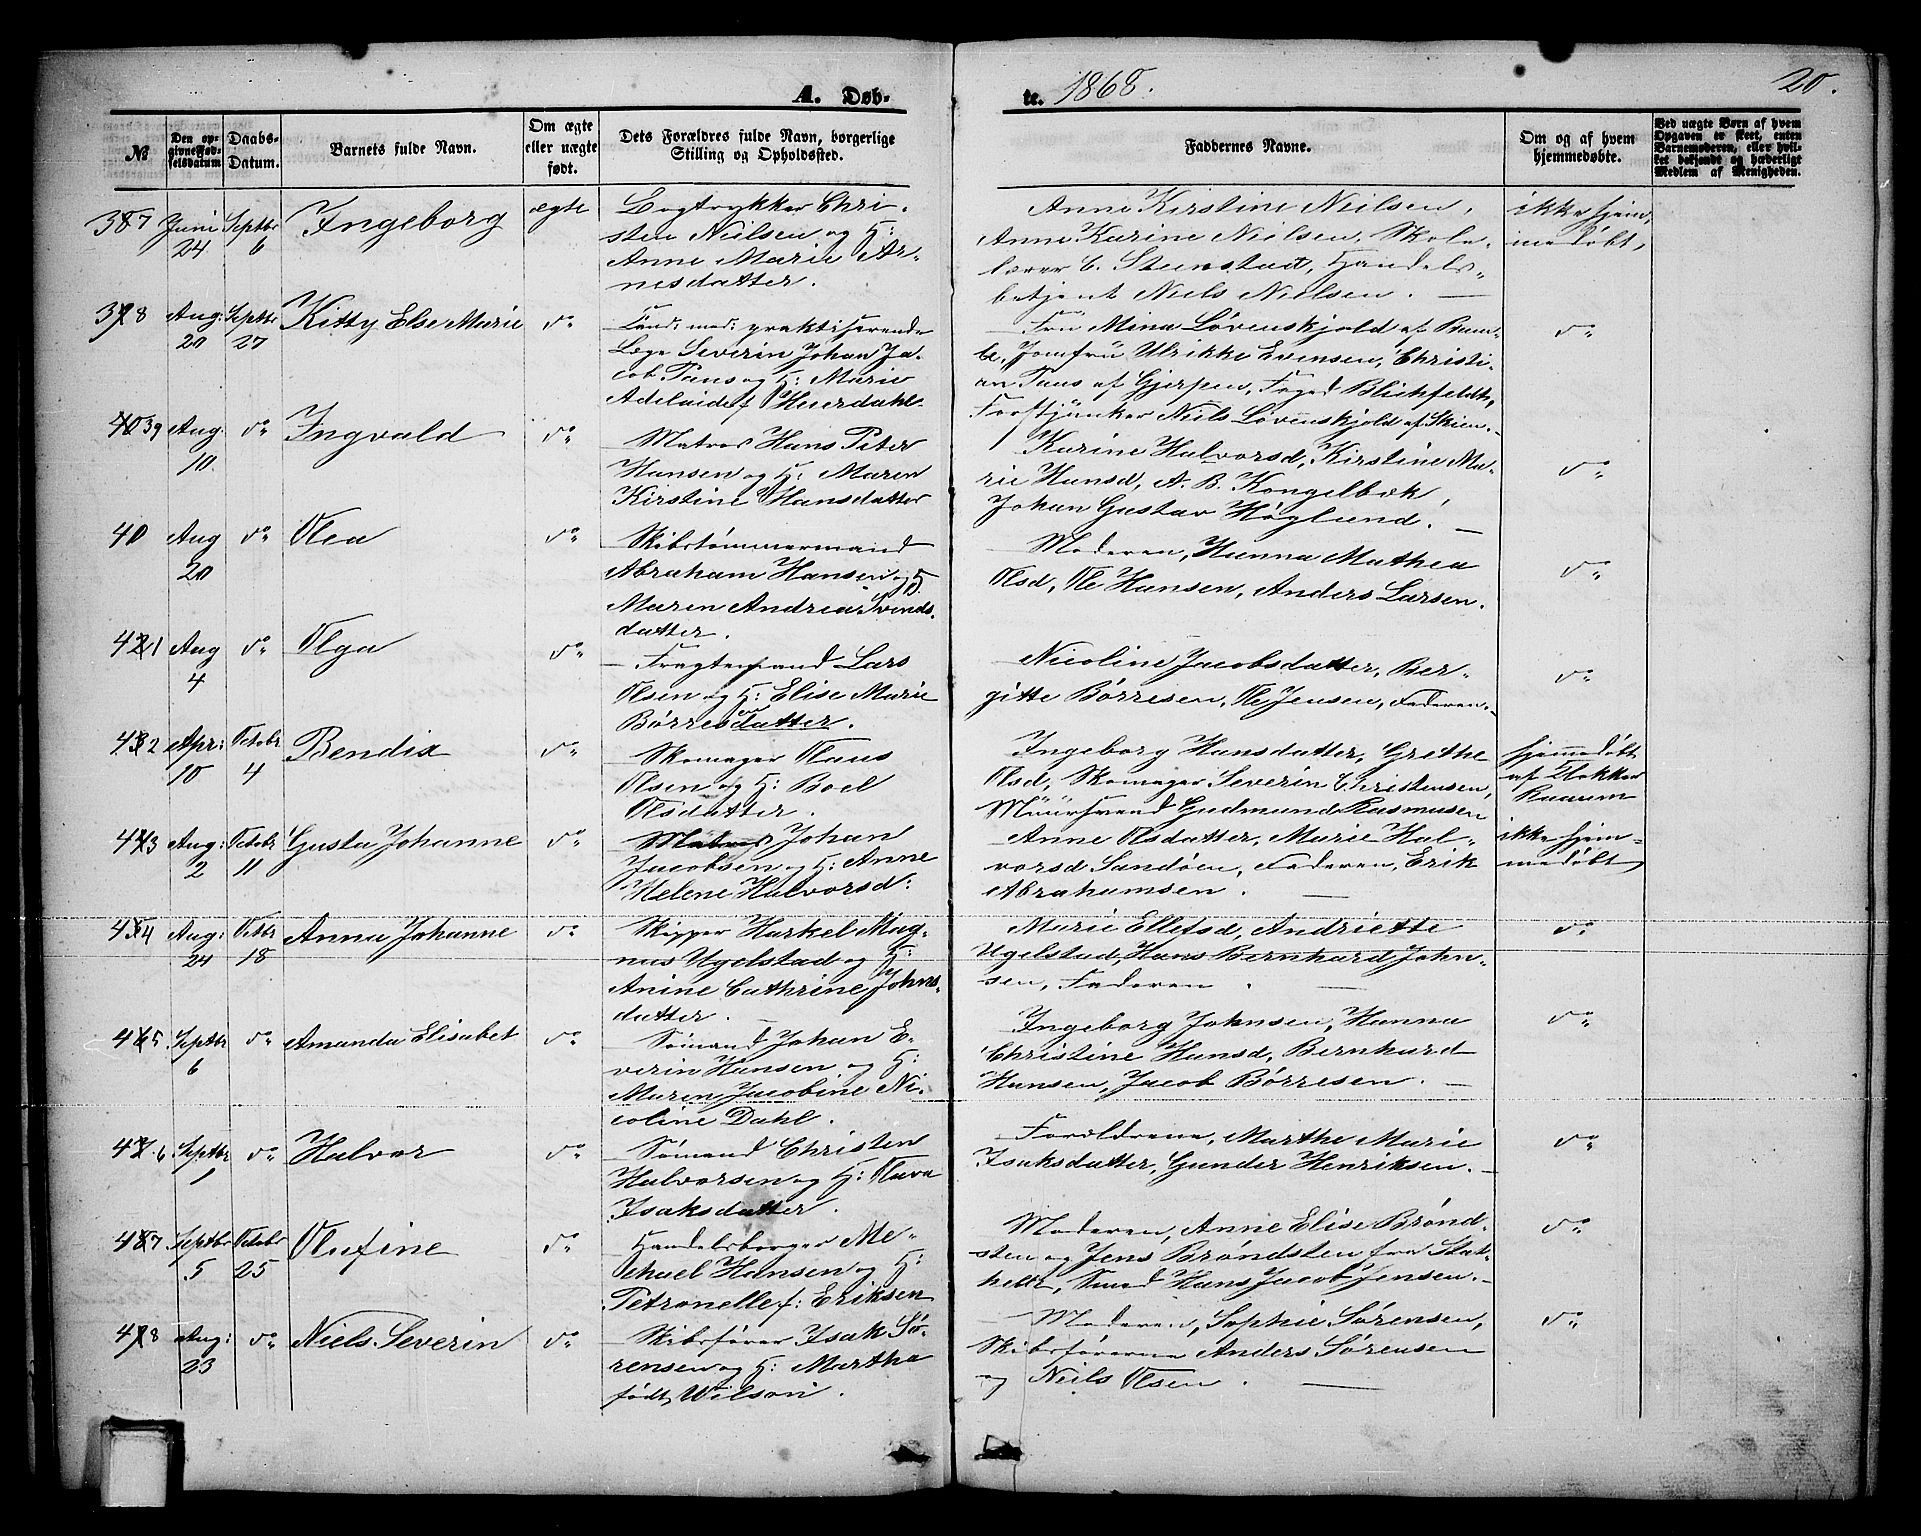 A. Døb-
te. 1868.
20.
№
Den op-
givne Fød-
selsdatum
Daabs-
Datum.
Barnets fulde Navn.
Om ægte
eller uægte
født.
Dets Forældres fulde Navn, borgerlige
Stilling og Opholdssted.
Faddernes Navne.
Om og af hvem
hjemmedøbte.
Ved uægte Børn af hvem
Opgaven er skeet, enten
Barnemoderen, eller hvil-
ket bekjendt og hæderligt
Medlem af Menigheden.
37 Juni 24 Septbr 6 Ingeborg ægte
Bogtrykker Chri-
sten Nielsen og H:
Anne Marie Ar-
nesdatter.
Anne Kirstine Nielsen,
Anne Karine Nielsen, Skole-
lærer C. Stenstad, Handels-
betjent Niels Nielsen. —
ikke hjem-
medøbt,
38 Aug: 20 Septbr 27 Kitty Else Marie do
Cand: med: praktiserende
Læge Severin Johan Ja-
cob Paus og H: Marie
Adelaide f. Heuerdahl
Fru Mina Løvenskjold af Bam-
ble, Jomfru Ulrikke Evensen, Christi-
an Paus af Gjerpen, Foged Blichfeldt,
Forstjunker Niels Løvenskjold af Skien.
do
39 Aug. 10. do Ingvald do
Matros Hans Peter
Hansen og H: Maren
Kirstine Hansdatter
Karine Halvorsd, Kirstine Ma-
rie Hansd, A. B. Kongelbæk,
Johan Gustav Høglund. —
do
40 Aug 20 do Olea do
Skibstømmermand
Abraham Hansen og H.
Maren Andrea Svends-
datter.
Moderen, Hanna Mathea
Olsd, Ole Hansen, Anders Larsen.
do
41 Aug 4 do Olga do
Fragtemand Lars
Olsen og H: Elise Marie
Børresdatter.
Nicoline Jacobsdatter, Ber-
gitte Børresen, Ole Jensen, Faderen.
do
42 Apr: 10 Octobr 4 Bendix do
Skomager Olaus
Olsen og H: Boel
Olsdatter.
Ingeborg Hansdatter, Grethe
Olsd, Skomager Severin Christensen,
Müürsvend Gudmund Rasmusen
hjemmedøbt
af Klokker
Raarum
43 Aug: 2 Octobr 11 Gusta Johanne do
Matros Johan
Jacobsen og H: Anne
Helene Halvorsd:
Anne Olsdatter, Marie Hal-
vorsd Sandøen, Faderen, Erik
Abrahamsen. —
ikke hjem-
medøbt
44 Aug: 24 Octbr 18 Anna Johanne do
Skipper Harkel Mag-
nus Ugelstad og H:
Anine Cathrine Johns-
datter. —
Marie Ellefsd, Andriette
Ugelstad, Hans Bernhard John-
sen, Faderen. —
do
45 Septbr 6 do Amanda Elisabet do
Sømand Johan E-
verin Hansen og H:
Maren Jacobine Ni-
coline Dahl.
Ingeborg Johnsen, Hanna
Christine Hansd, Bernhard
Hansen, Jacob Børresen. —
do
46 Septbr 1 do Halvor do
Sømand Christen
Halvorsen og H: Olava
Isaksdatter.
Forældrene, Marthe Marie
Isaksdatter, Gunder Henriksen. —
do
47 Septbr 5 Octobr 25 Olufine do
Handelsborger Me-
chael Hansen og H:
Petronelle f: Eriksen
Moderen, Anne Elise Brønd-
sten og Jens Brøndsten fra Stat-
helle, Smed Hans Jacob Jensen. —
do
48 Aug: 23 do Niels Severin do
Skibsfører Isak Sø-
rensen og H: Marthe
født Wilson.
Moderen, Sophie Sørensen,
Skibsførerne Anders Sørensen
og Niels Olsen. —
do